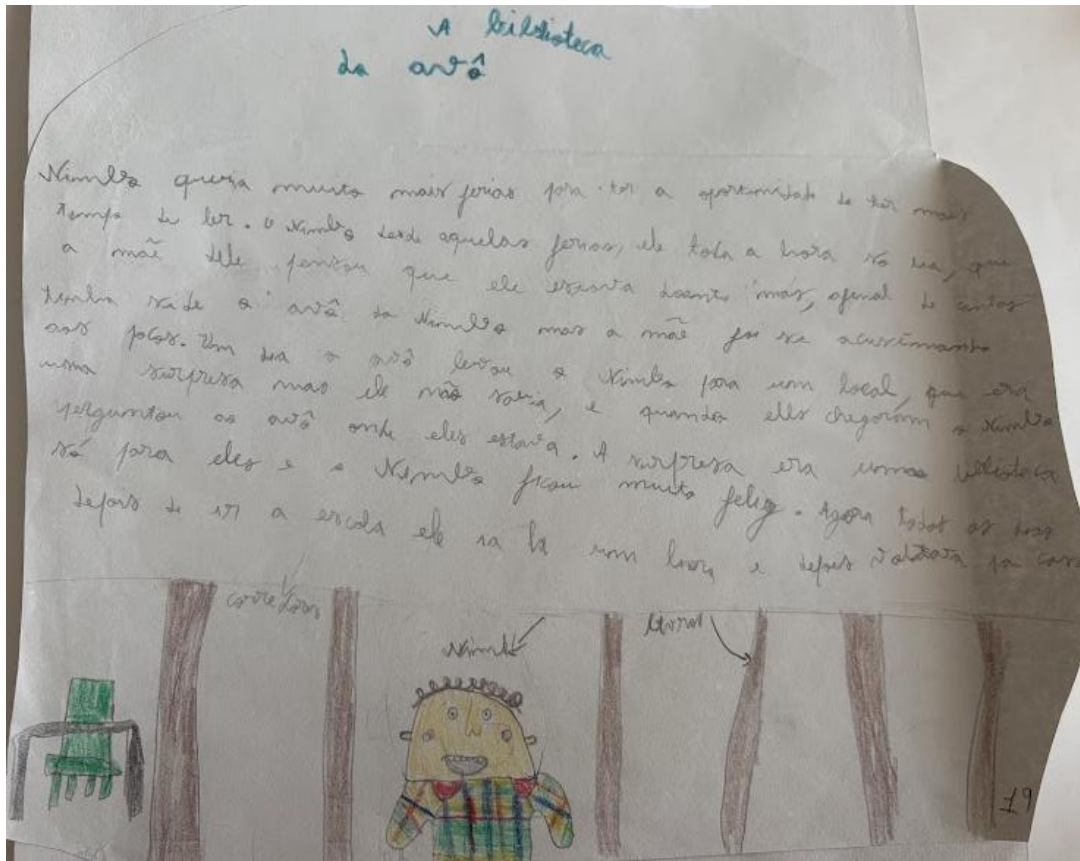 A biblioteca
da avô
Nimbo queria muito mais ferias para ter a oportunidade de ter mais
tempo de ler. O Nimbo desde aquelas ferias, ele toda a hora só lia, que
a mãe dele pensou que ele estava doente mas, afinal de contas
tinha sido o avô do Nimbo mas a mãe foi se acustimando
aos pocos. Um dia o avô levou o Nimbo para um local, que era
uma surpresa mas ele não sabia, e quando eles chegaram o Nimbo
perguntou ao avô onde eles estava. A surpresa era uma
só para eles e o Nimbo ficou muito feliz. Agora todos os dias
depois de ir a escola ele ia la um livro e depois voltava pa casa
corredores
Nimbo
livros
19